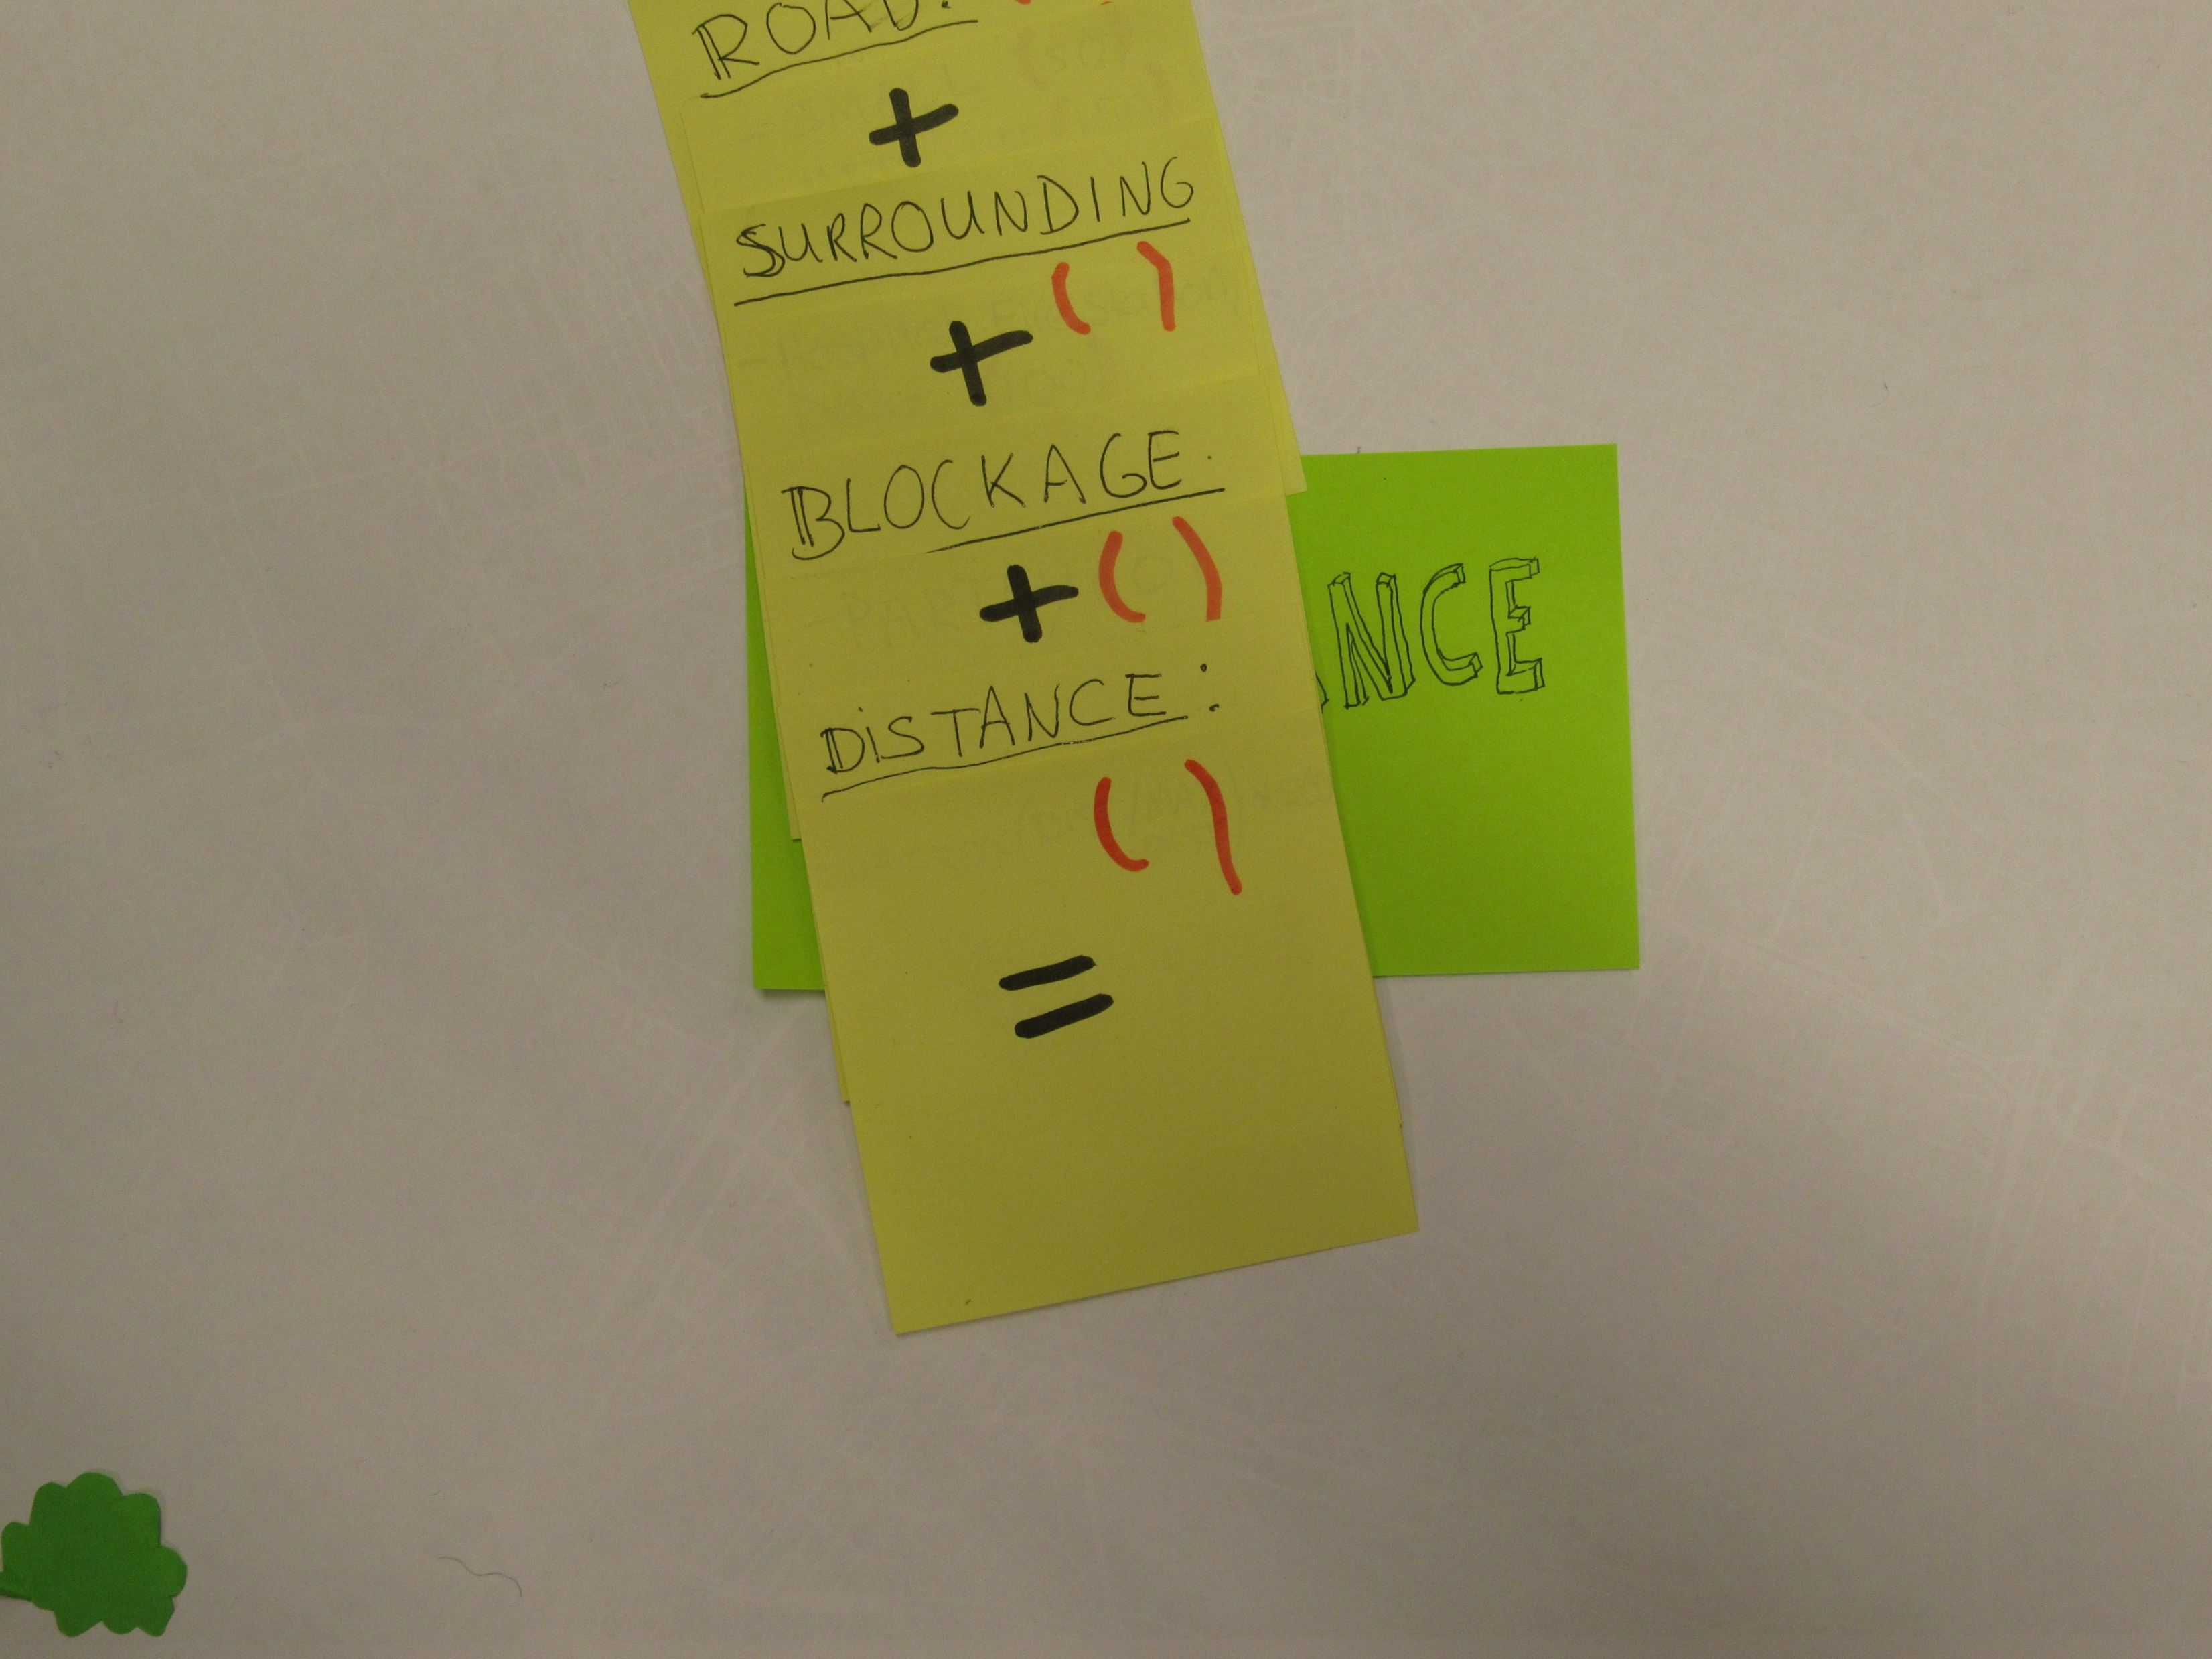 ROAD:
+
SURROUNDING
+ ( )
BLOCKAGE.
+ ( )
DISTANCE:
( )
=
NCE